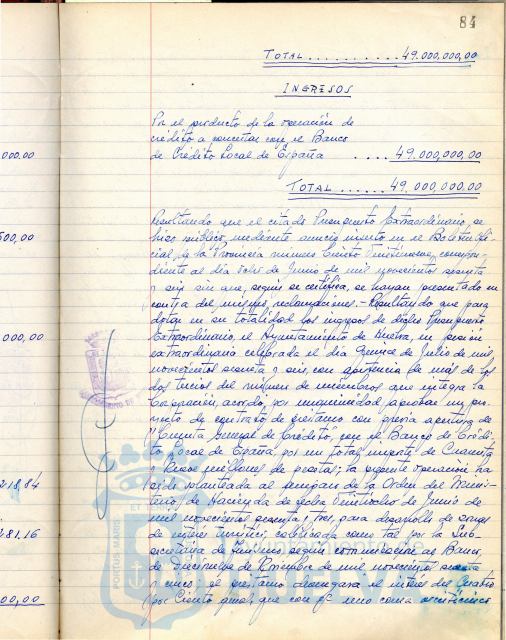 84
TOTAL .......... 49.000.000,00
INGRESOS
Por el producto de la operación de
crédito a concertar con el Banco
de Crédito Local de España .... 49.000.000,00
000,00
TOTAL ...... 49.000.000,00
Resultando que el citado Presupuesto Extraordinario, se
hizo público, mediante anuncio inserto en el Boletín Ofi-
500,00
cial de la Provincia número Ciento
diente al día de Junio de mil novecientos sesenta
y seis sin que, según se certifica, se hayan presentado en
contra del mismo, reclamaciones.- Resultando que para
dotar en su totalidad los ingresos de dicho Presupuesto
000,00
Extraordinario, el Ayuntamiento de Huelva, en sesión
extraordinaria celebrada el día Quince de Julio de mil
novecientos sesenta y seis, con asistencia de más de los
dos tercios del número de miembros que integra la
Corporación, acordó, por unanimidad, aprobar un pro-
yecto de contrato de préstamo con previa apertura de
"Cuenta General de Crédito, con el Banco de Crédi-
to Local de España, por un total importe de Cuarenta
218,84
y Nueve millones de pesetas; la siguiente operación ha
sido planteada al amparo de la Orden del Minis-
terio de Hacienda de fecha Veintiocho de Junio de
mil novecientos sesenta y tres, para desarrollo de
281,16
de interés turístico, calificada como tal por la Sub-
secretaría de Turismo, según comunicación al Banco,
de Dieciocho de Noviembre de mil novecientos sesenta
y cinco, el préstamo devengará el interés del Cuatro
00,00
por Ciento anual, que con el uno coma
PORTUS MARIS